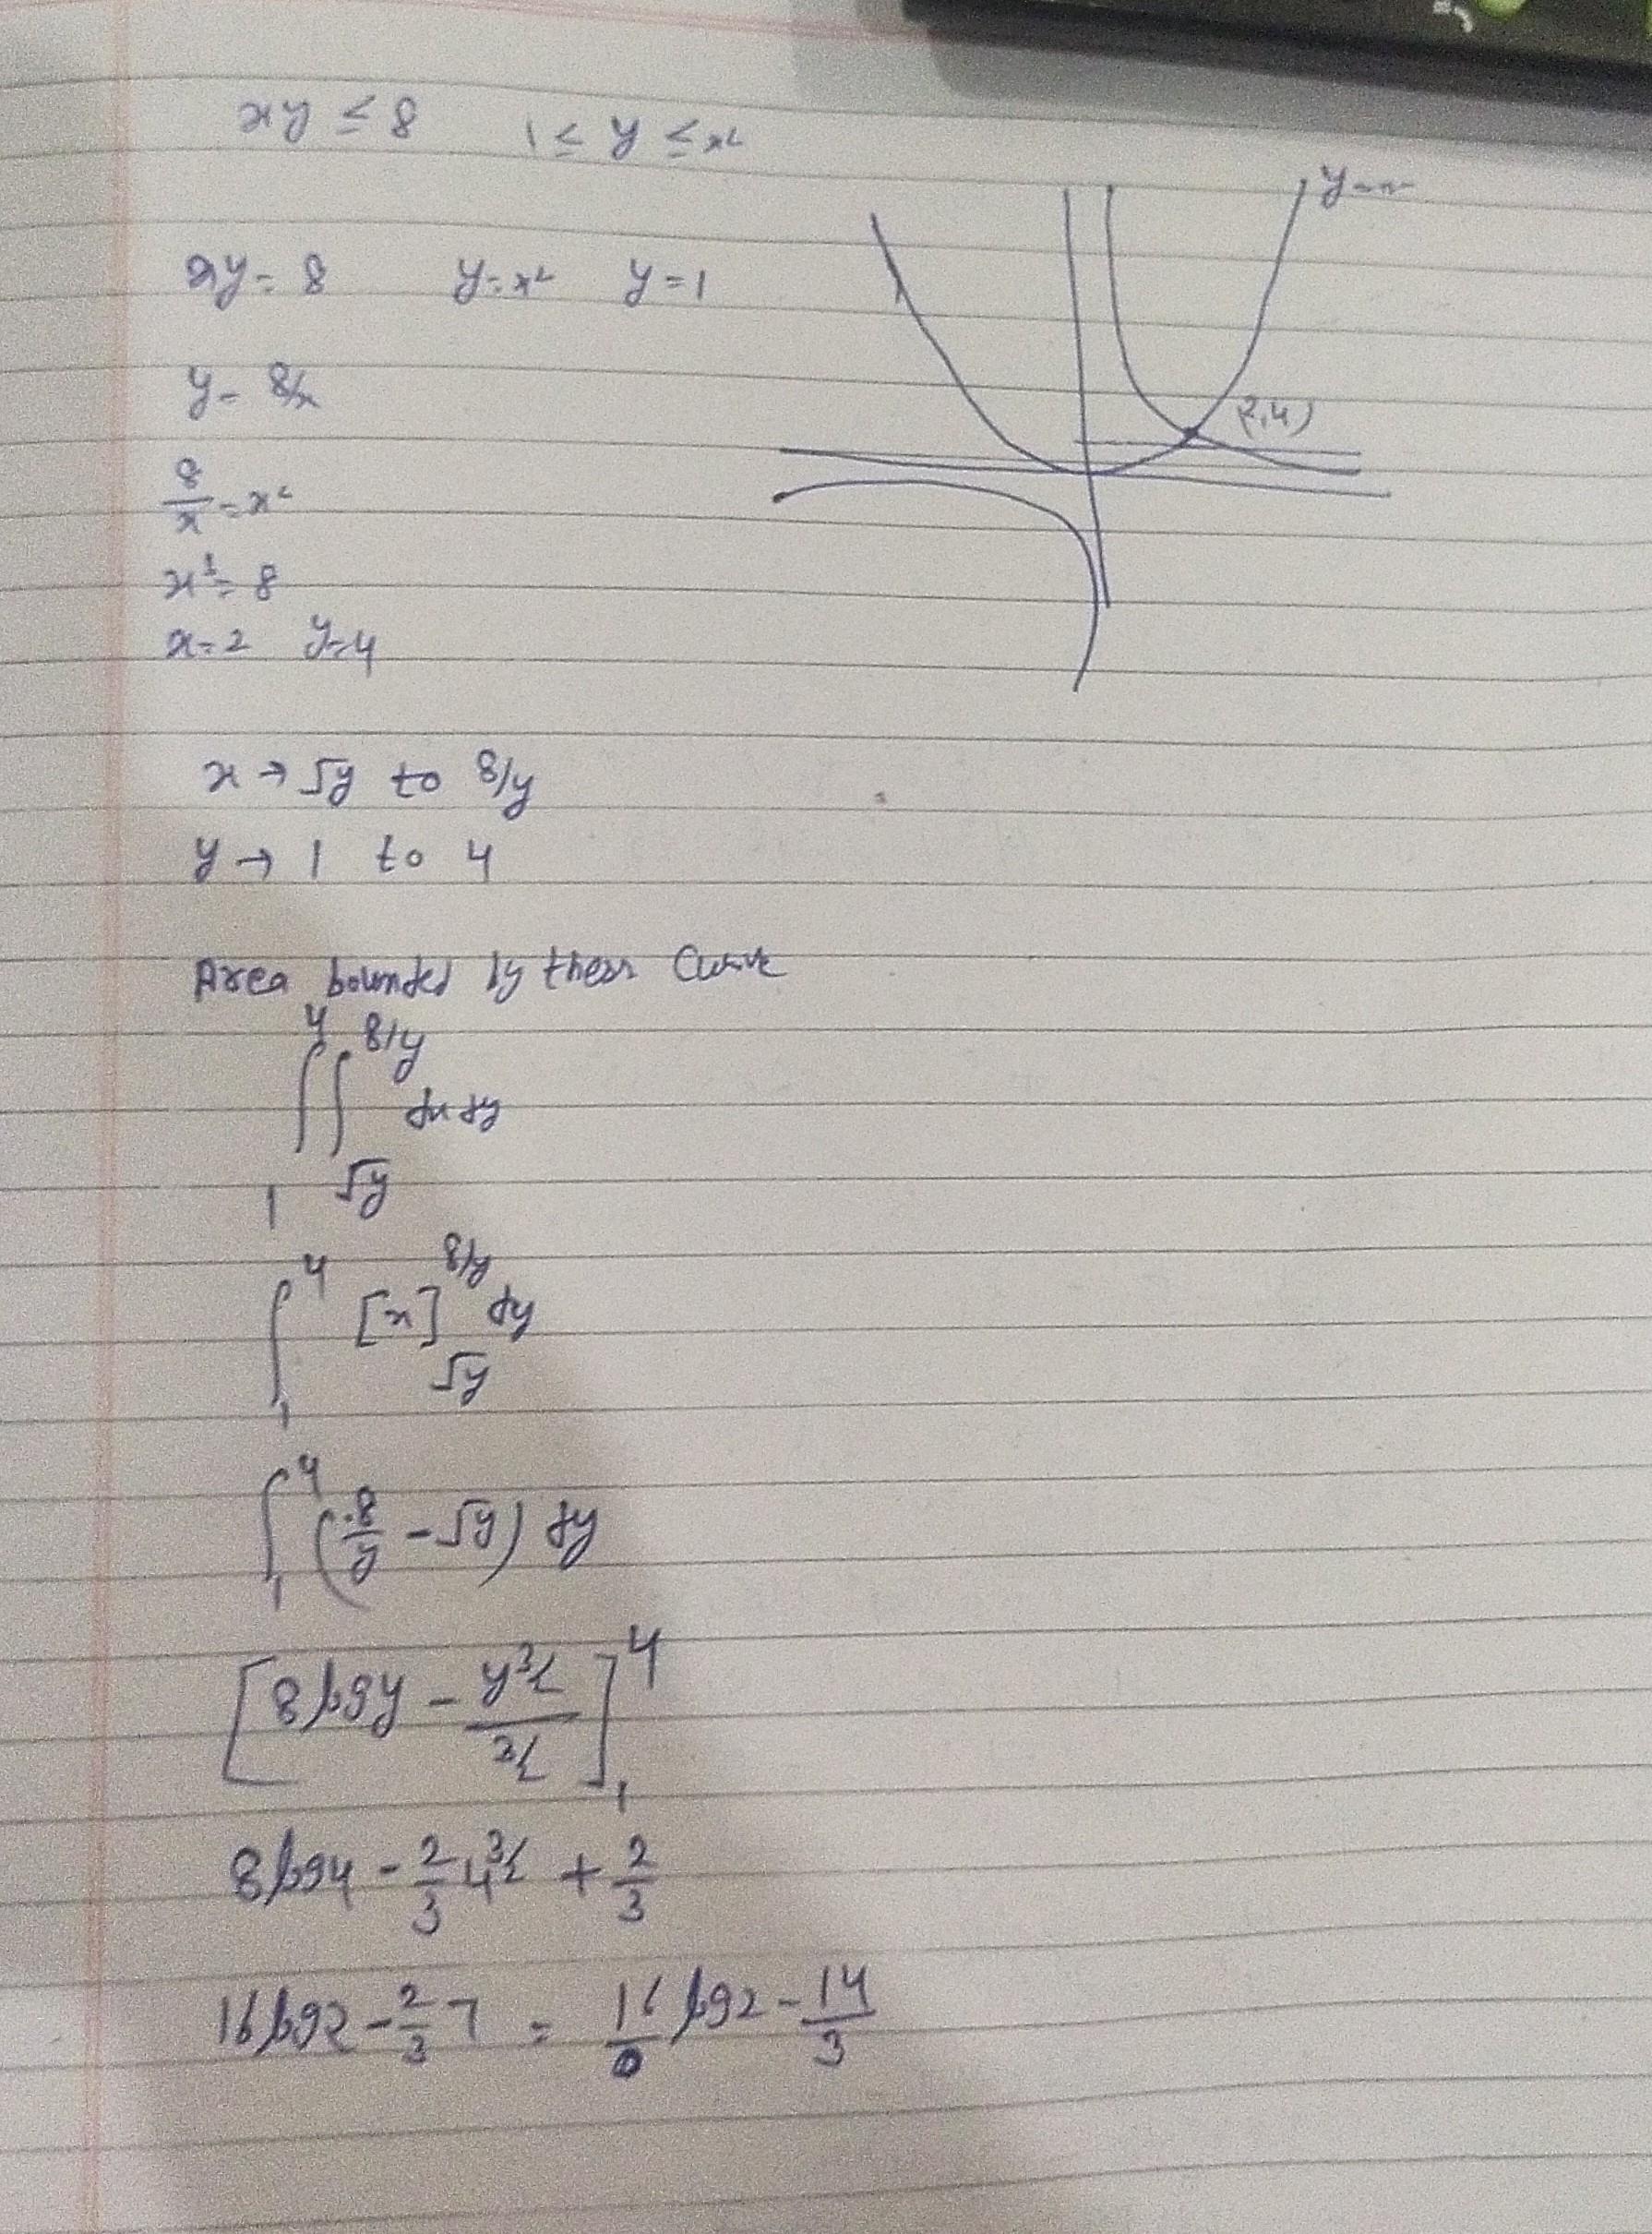 xy ≤ 8 1 ≤ y ≤ x²
xy = 8 y = x² y = 1
y = 8/x
8/x = x²
x³ = 8
x = 2 y = 4
(2,4)
x → √y to 8/y
y → 1 to 4
Area bounded by these Curve
∫₁⁴ ∫_√y^8/y dx dy
∫₁⁴ [x]_√y^8/y dy
∫₁⁴ (8/y - √y) dy
[8 log y - y^3/2 / 3/2]₁⁴
8 log 4 - 2/3 4^3/2 + 2/3
16 log 2 - 2/3 7 = 16 log 2 - 14/3